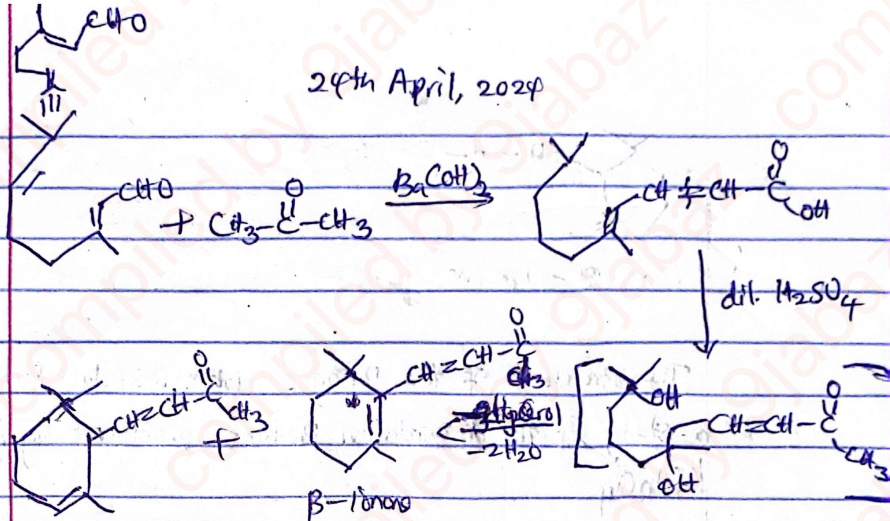 CHO
24th April, 2024
CHO + CH3-C-CH3 Ba(OH)2 CH=CH-C
O
O
OH
dil. H2SO4
O
CH=CH-C
CH3
+
CH=CH-C
O
CH3
*
-2H2O
OH
CH=CH-C
O
CH3
OH
β-Ionone
compiled by 9jabaz